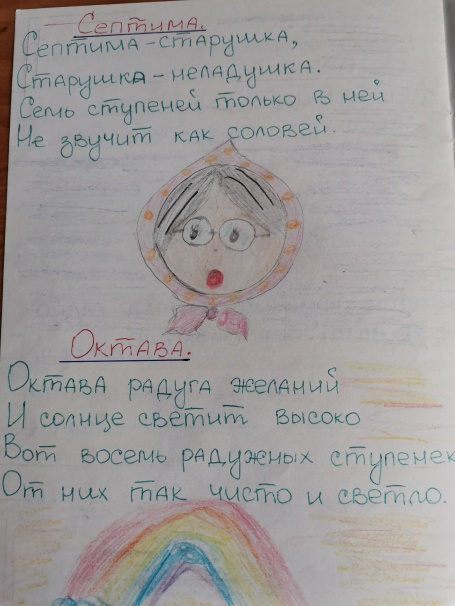 Септима.
Септима-старушка,
Старушка-неладушка.
Семь ступеней только в ней
Не звучит как соловей.
Октава.
Октава радуга желаний
И солнце светит высоко
Вот восемь радужных ступенек
От них так чисто и светло.